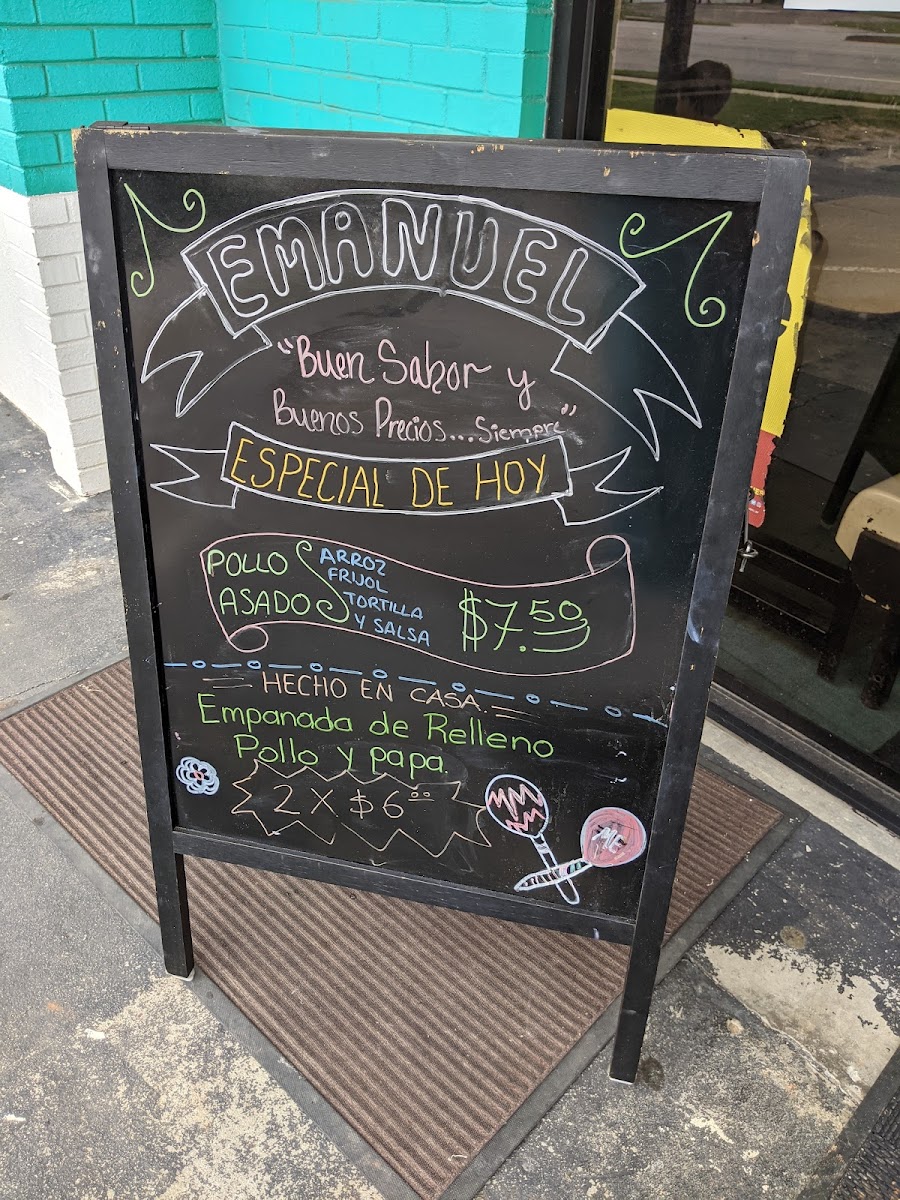 EMANUEL
"Buen Sabor y
Buenos Precios...Siempre"
ESPECIAL DE HOY
POLLO
ASADO
ARROZ
FRIJOL
TORTILLA
Y SALSA
$7.50
HECHO EN CASA
Empanada de Relleno
Pollo y papa.
2 X $6.00